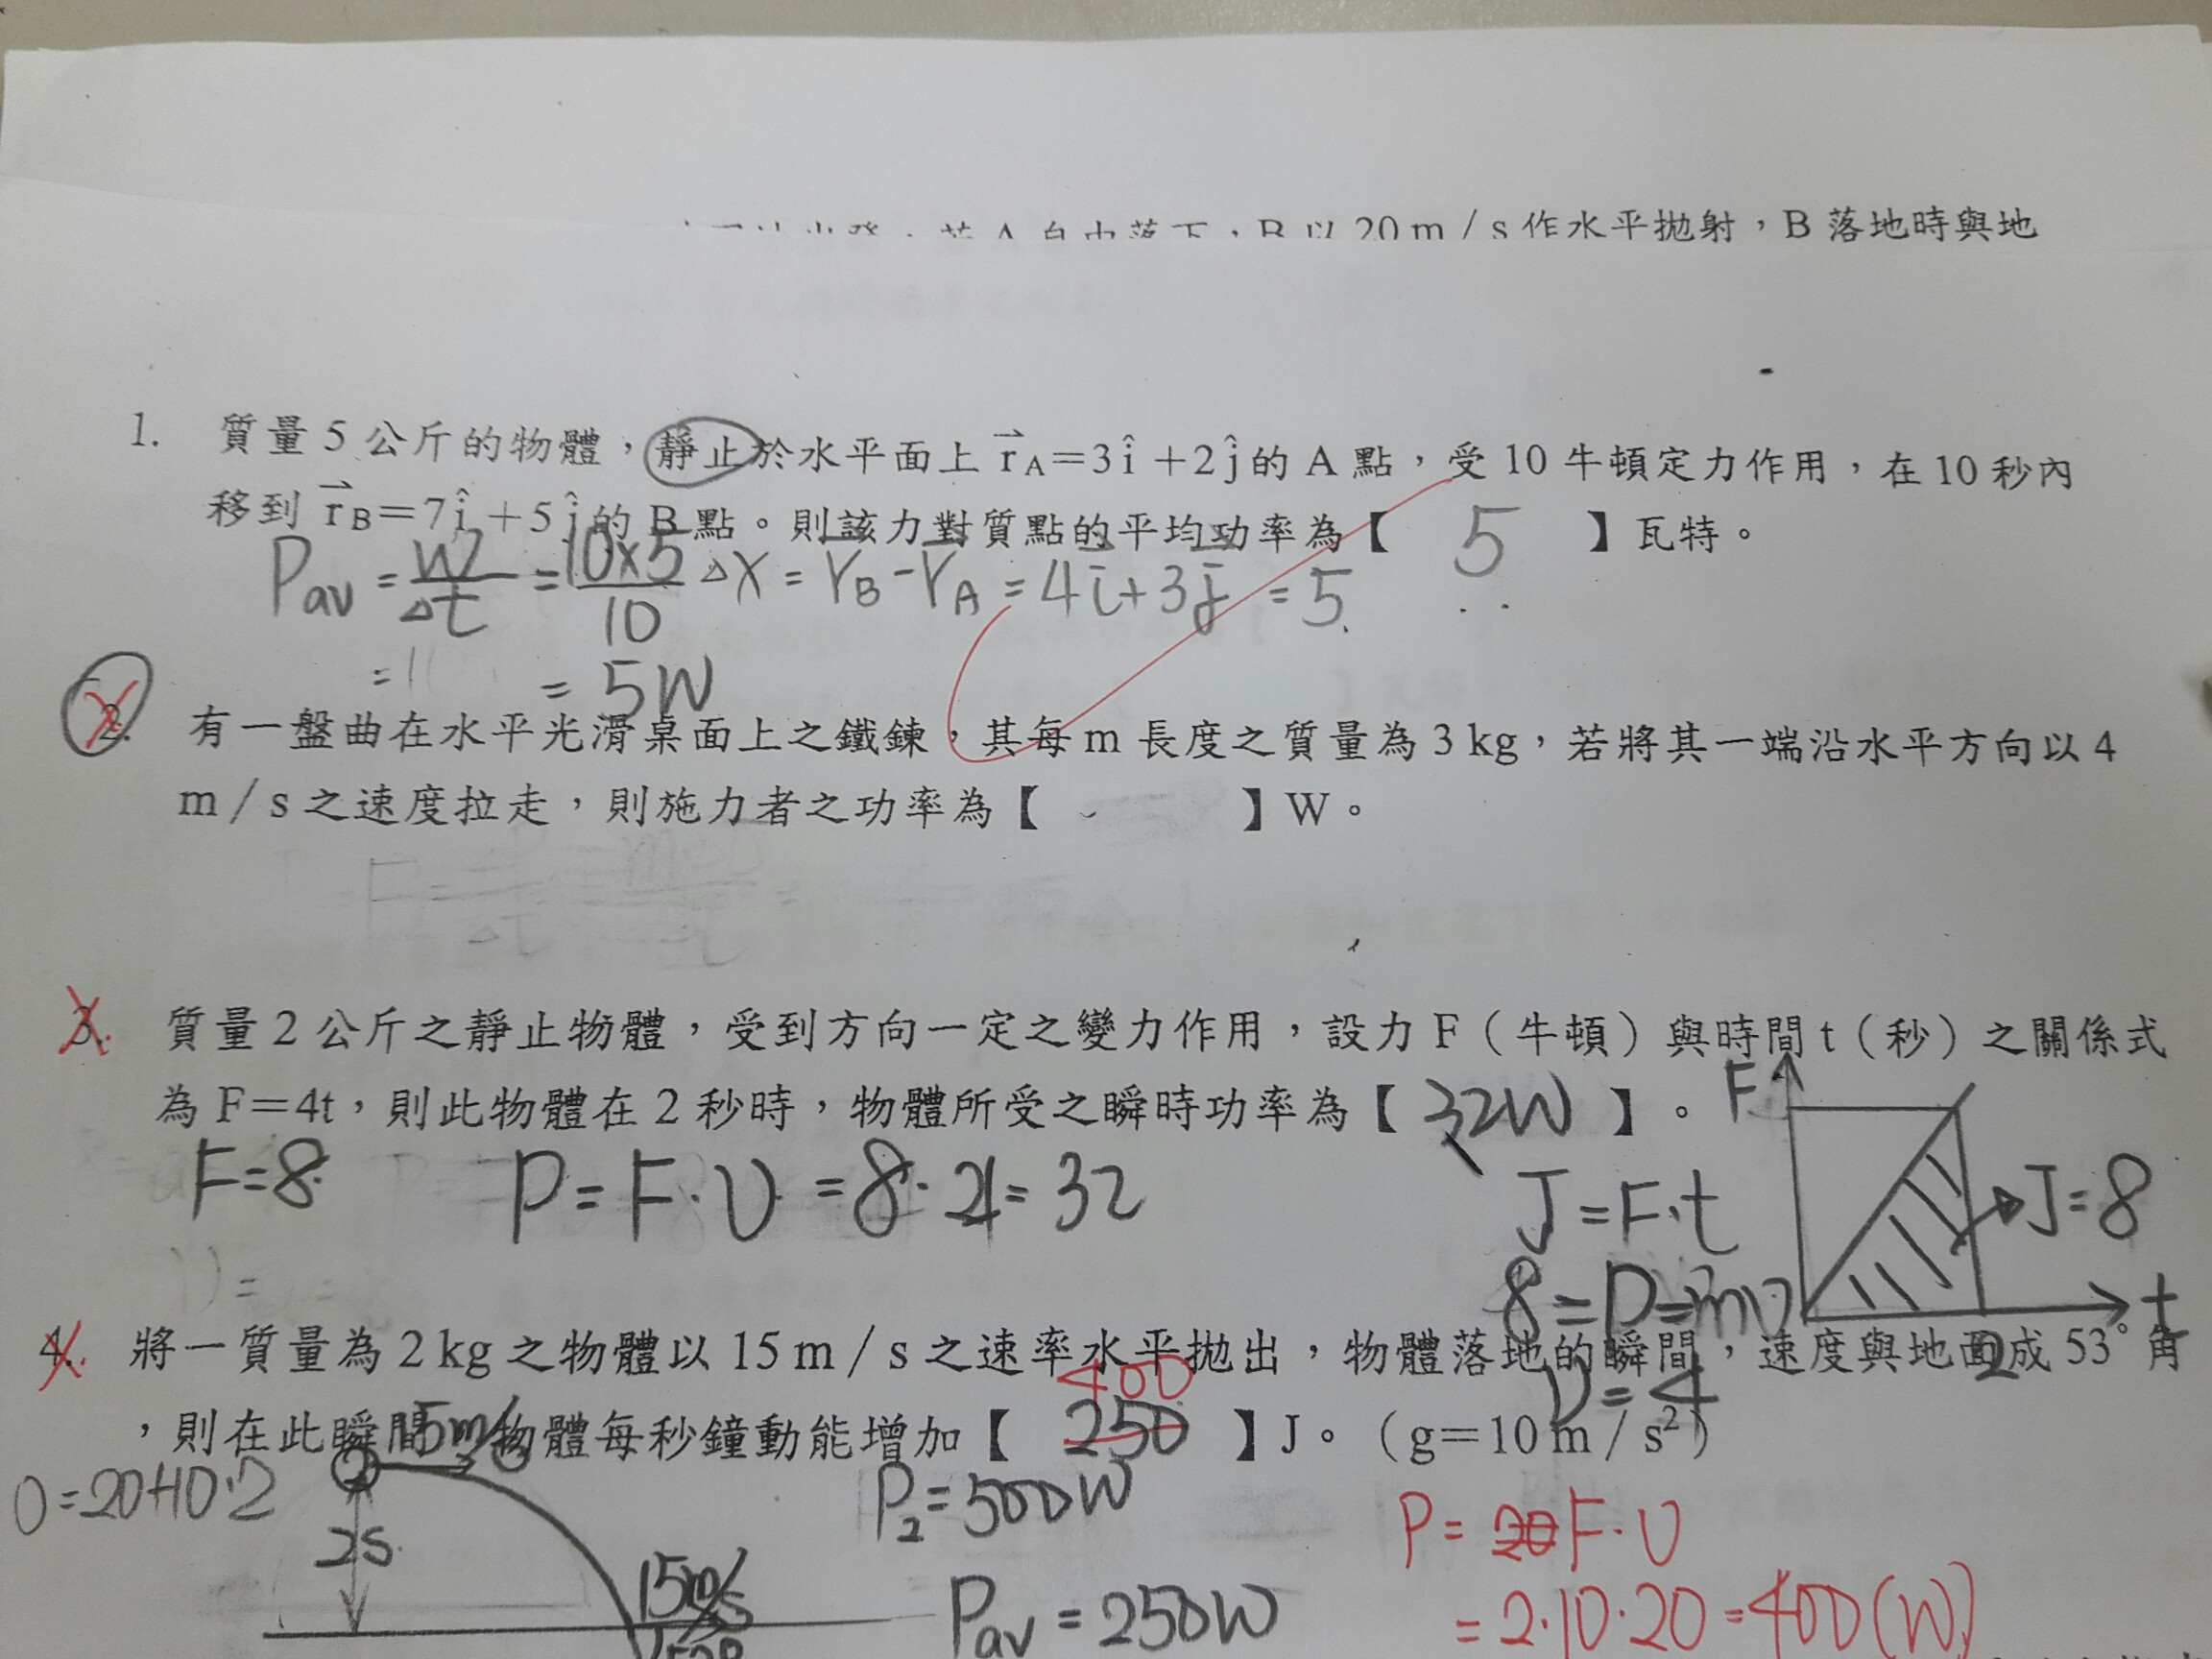 B 以 20 m / s 作水平拋射，B 落地時與地
1. 質量 5 公斤的物體，靜止於水平面上 r⃗A=3î+2ĵ的 A 點，受 10 牛頓定力作用，在 10 秒內
移到 r⃗B=7î+5ĵ的 B 點。則該力對質點的平均功率為【 5 】瓦特。
Pav = W/Δt = 10×5/10 ΔX = r⃗B - r⃗A = 4i+3j = 5
= 5W
2. 有一盤曲在水平光滑桌面上之鐵鍊，其每 m 長度之質量為 3 kg，若將其一端沿水平方向以 4
m / s 之速度拉走，則施力者之功率為【 】W。
3. 質量 2 公斤之靜止物體，受到方向一定之變力作用，設力 F（牛頓）與時間 t（秒）之關係式
為 F=4t，則此物體在 2 秒時，物體所受之瞬時功率為【 32W 】。
F
F=8 P=F·υ=8·4=32
J=F·t
J=8
8=P=mυ
t
2
υ=4
4. 將一質量為 2 kg 之物體以 15 m / s 之速率水平拋出，物體落地的瞬間，速度與地面成 53°角
400
，則在此瞬間，物體每秒鐘動能增加【 250 】J。（g=10 m / s²）
15m/s
0=20+10·2
2s
P2=500W
P=20F·υ
15m/s
Pav=250W
=2·10·20=400(W)